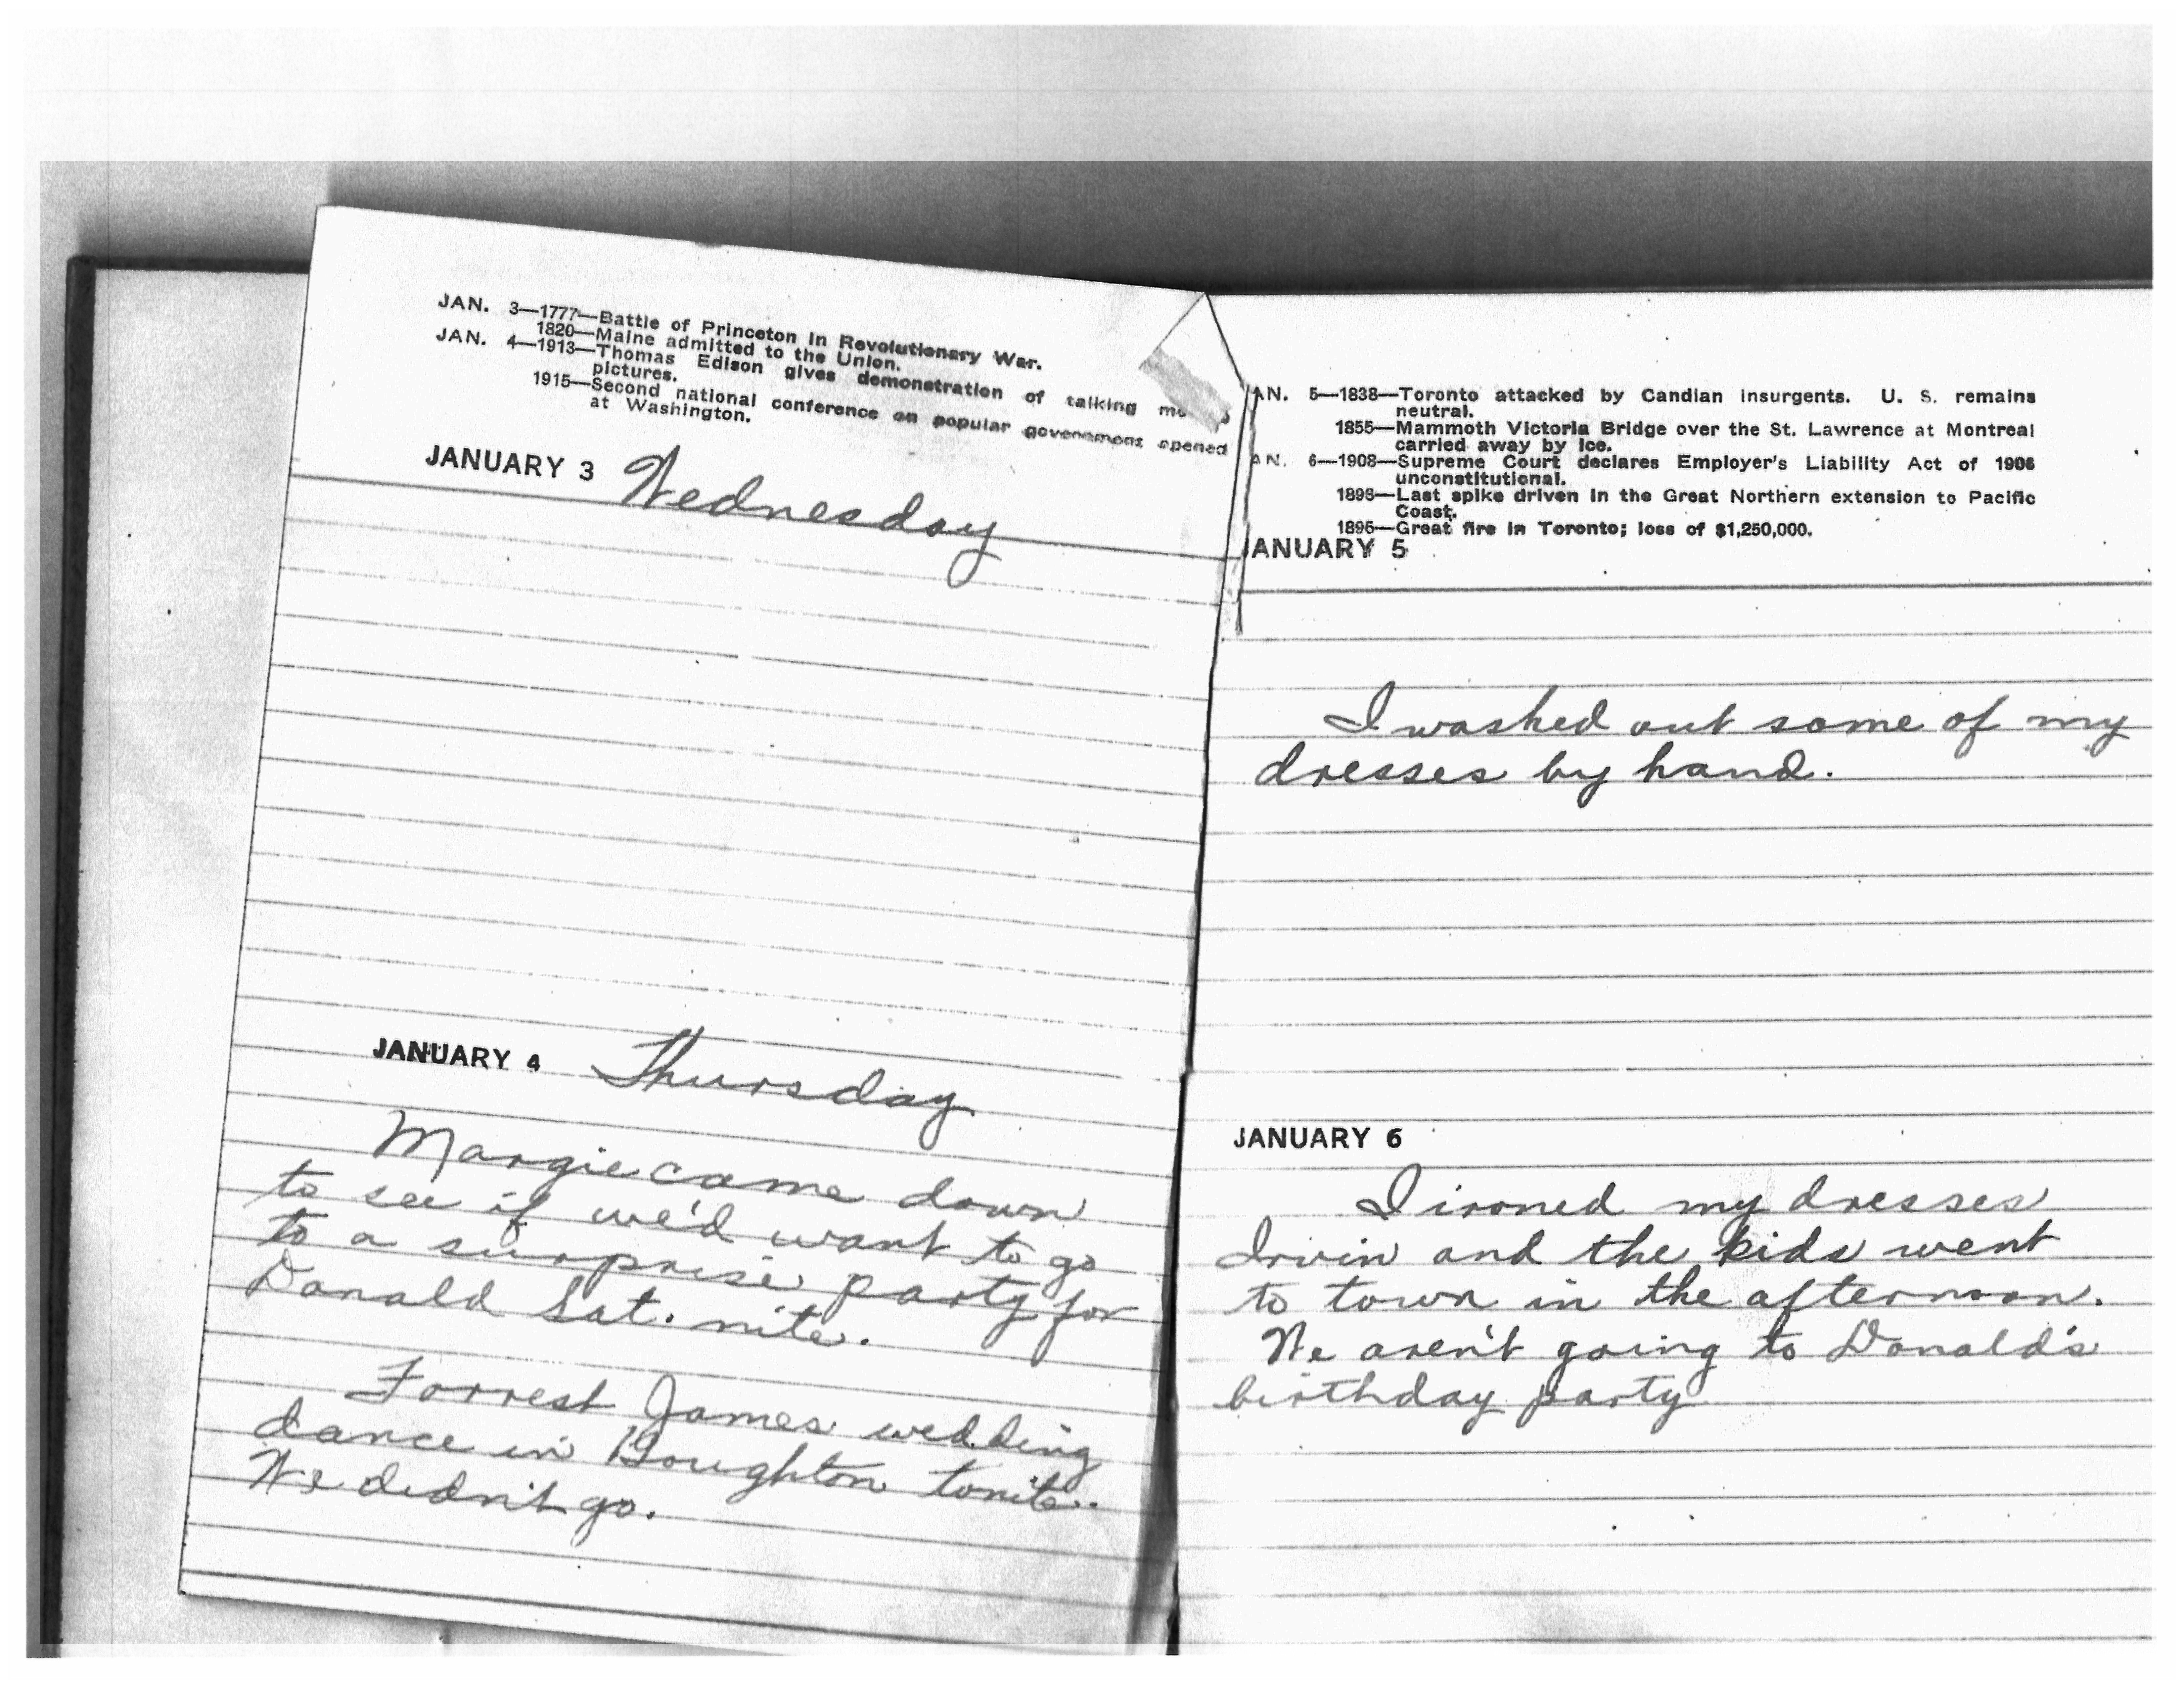 JAN. 3—1777—Battle of Princeton in Revolutionary War.
1820—Maine admitted to the Union.
JAN. 4—1913—Thomas Edison gives demonstration of talking
pictures.
1915—Second national conference on popular government opened
at Washington.
JANUARY 3 Wednesday
JANUARY 4 Thursday
Margie came down
to see if we'd want to go
to a surprise party for
Donald Sat. nite.
Forrest James wedding
dance in Houghton tonite.
We didn't go.
AN. 5—1838—Toronto attacked by Candian insurgents. U. S. remains
neutral.
1855—Mammoth Victoria Bridge over the St. Lawrence at Montreal
carried away by ice.
AN. 6—1908—Supreme Court declares Employer's Liability Act of 1906
unconstitutional.
1893—Last spike driven in the Great Northern extension to Pacific
Coast.
1895—Great fire in Toronto; loss of $1,250,000.
JANUARY 5
I washed out some of my
dresses by hand.
JANUARY 6
I ironed my dresses
Irvin and the kids went
to town in the afternoon.
We aren't going to Donald's
birthday party